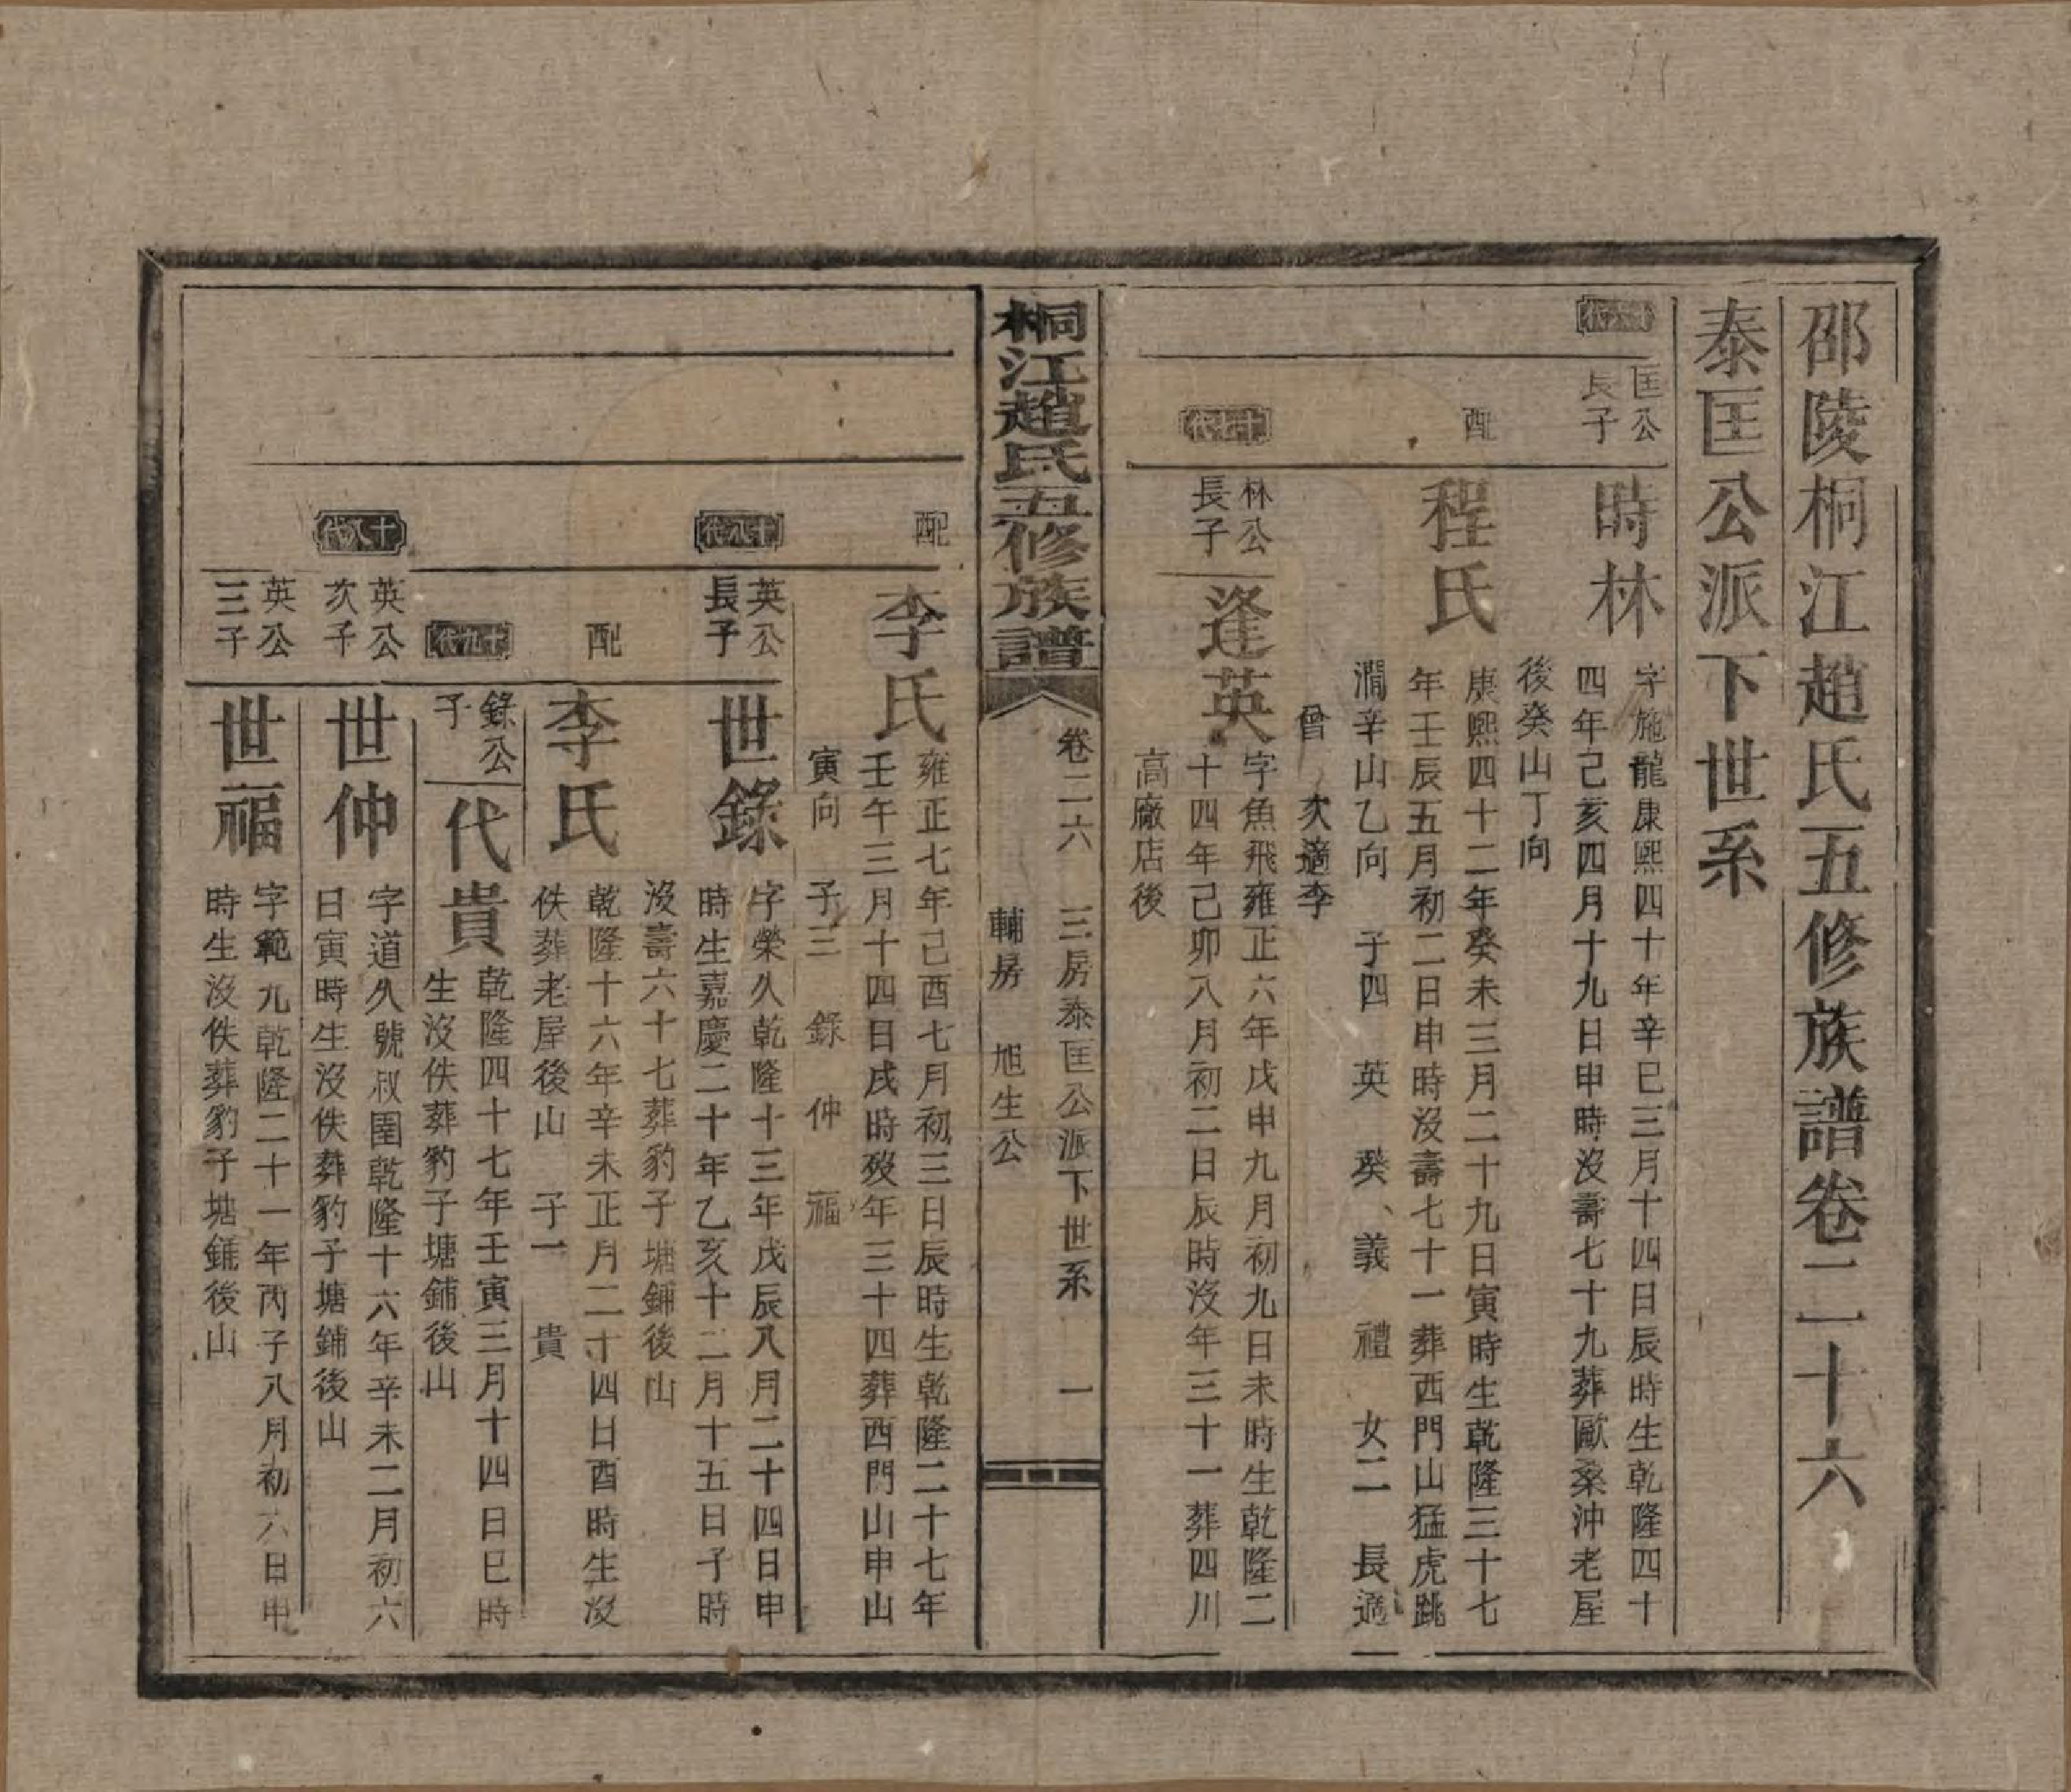 邵陵桐江趙氏五修族譜卷二十六
泰匡公派下世系
十六代
匡公
長子
時林
字施龍康熙四十年辛巳三月十四日辰時生乾隆四十
四年己亥四月十九日申時沒壽七十九葬歐桑沖老屋
後癸山丁向
配
程氏
庚熙四十二年癸未三月二十九日寅時生乾隆三十七
年壬辰五月初二日申時沒壽七十一葬西門山猛虎跳
澗辛山乙向 子四 英 癸 義 禮 女二 長適
曾 次適李
十七代
林公
長子
逢英
字魚飛雍正六年戊申九月初九日未時生乾隆二
十四年己卯八月初二日辰時沒年三十一葬四川
高廠店後
桐江趙氏五修族譜
卷二六 三房泰匡公派下世系 一
輔房 旭生公
配
李氏
雍正七年己酉七月初三日辰時生乾隆二十七年
壬午三月十四日戌時歿年三十四葬西門山申山
寅向 子三 錄 仲 福
十八代
英公
長子
世錄
字榮久乾隆十三年戊辰八月二十四日申
時生嘉慶二十年乙亥十二月十五日子時
沒壽六十七葬豹子塘鋪後山
配
李氏
乾隆十六年辛未正月二十四日酉時生沒
佚葬老屋後山 子一 貴
十九代
錄公
子
代貴
乾隆四十七年壬寅三月十四日巳時
生沒佚葬豹子塘鋪後山
十八代
英公
次子
世仲
字道久號叔圍乾隆十六年辛未二月初六
日寅時生沒佚葬豹子塘鋪後山
英公
三子
世福
字範九乾隆二十一年丙子八月初六日申
時生沒佚葬豹子塘鋪後山